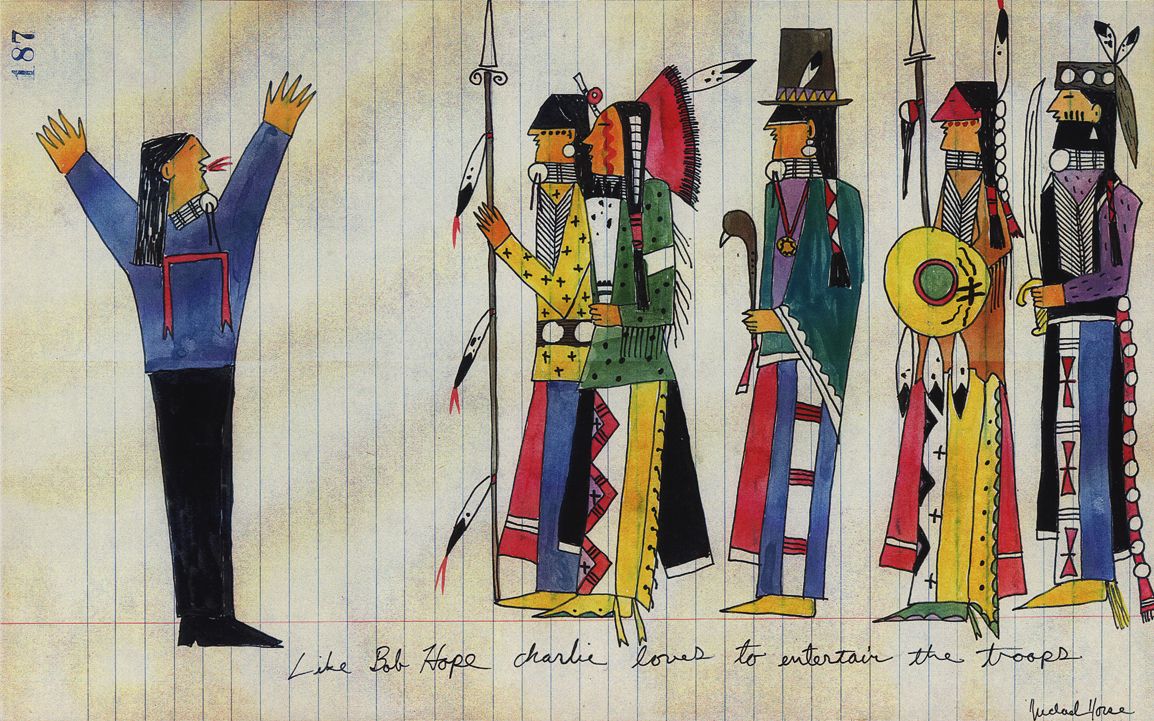 187
Like Bob Hope charlie loves to entertain the troops
Horse